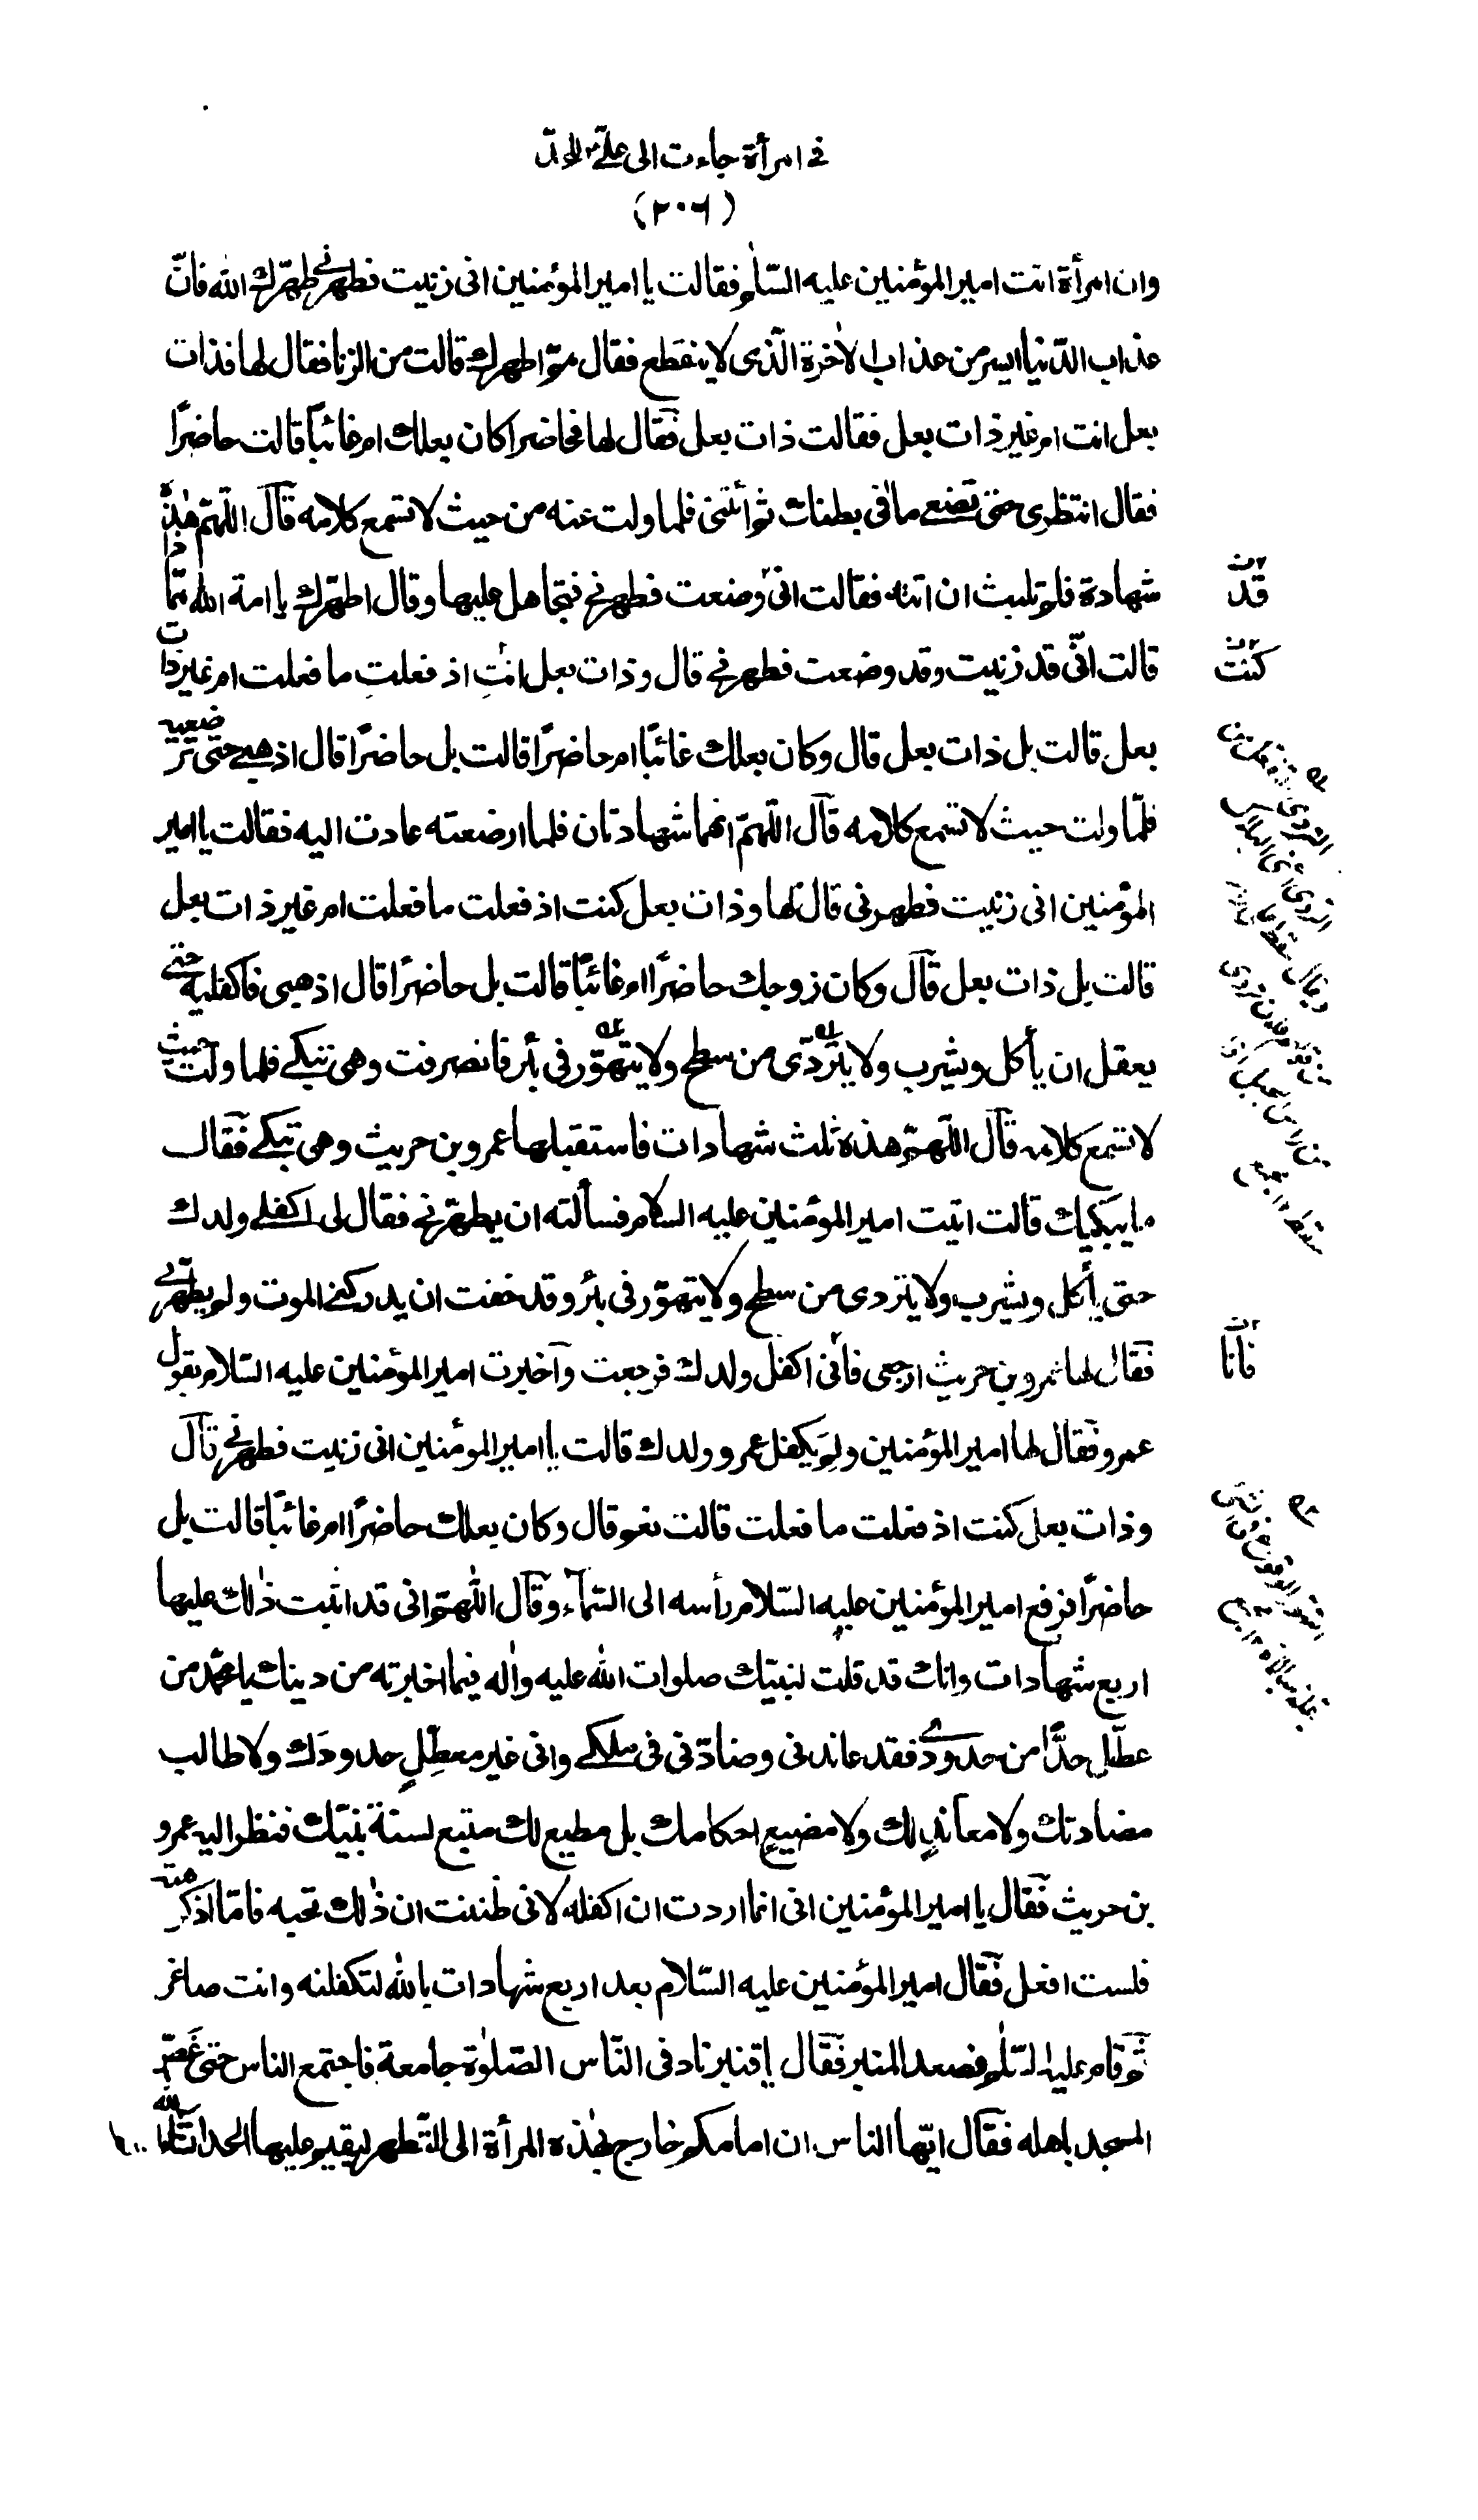 في امرأة جاءت الى علىّ للحدّ
(٢٠٦)
وان امرأة اتت امير المؤمنين عليه السّلم فقالت يا امير المؤمنين انى زنيت فطهرنى طهّرك الله فانّ
عذاب الدّنيا ايسر من عذاب الاخرة الّذى لا ينقطع فقال ممّ اطهرك قالت من الزنا فقال لها فذات
بعل انت ام غير ذات بعل فقالت ذات بعل فقال لها فحاضرا كان بعلك ام غائباً قالت حاضرًا
فقال انتظرى حتى تضعى ما فى بطنك ثم ائتنى فلما ولت عنه من حيث لا تسمع كلامه قال اللّهمّ هذه
شهادة فلم تلبث ان اتته فقالت انى وضعت فطهرنى فتجاهل عليها وقال اطهّرك يا امة الله ممّا ذا
قالت انّى قد زنيت وقد وضعت فطهرنى قال وذات بعل انتِ اذ فعلتِ ما فعلت ام غير ذات
بعل قالت بل ذات بعل قال وكان بعلك غائبًا ام حاضرًا قالت بل حاضرًا قال اذهبى حتى ترضعيه
فلمّا ولت حيث لا تسمع كلامه قال اللّهمّ انهما شهادتان فلما ارضعته عادت اليه فقالت يا امير
المؤمنين انى زنيت فطهرنى قال لها وذات بعل كنت اذ فعلت ما فعلت ام غير ذات بعل
قالت بل ذات بعل قال وكان زوجك حاضرًا ام غائبًا قالت بل حاضرًا قال اذهبى فاكفليه حتى
يعقل ان يأكل ويشرب ولا يتردّى من سطح ولا يتهوّر فى بئر فانصرفت وهى تبكى فلما ولت حيث
لا تسمع كلامه قال اللّهمّ هذه ثلث شهادات فاستقبلها عمرو بن حريث وهى تبكى فقال
ما يبكيك قالت اتيت امير المؤمنين عليه السلام فسألته ان يطهّرنى فقال لى اكفلى ولدك
حتى يأكل ويشرب ولا يتردى من سطح ولا يتهوّر فى بئر وقد خفت ان يدركنى الموت ولم يطهّرنى
فقال لها عمرو بن حريث ارجعى فانى اكفل ولدك فرجعت واخبرت امير المؤمنين عليه السّلام بقول
عمرو فقال لها امير المؤمنين ولِمَ يكفل عمرو ولدك قالت يا امير المؤمنين انى زنيت فطهرنى قال
وذات بعل كنت اذ فعلت ما فعلت قالت نعم قال وكان بعلك حاضرًا ام غائبًا قالت بل
حاضرًا فرفع امير المؤمنين عليه السّلام رأسه الى السّماء وقال اللّهمّ انى قد اثبت ذلك عليها
اربع شهادات وانك قد قلت لنبيّك صلوات الله عليه واله فيما اخبرته من دينك يا محمّد من
عطّل حدًّا من حدودى فقد عاندنى وضادّنى فى ملكى وانى غير معطّلٍ حدودَك ولا طالب
مضادتك ولا معاندٍ لك ولا مضيعٍ احكامك بل مطيع لك متبع لسنة نبيّك فنظر اليه عمرو
بن حريث فقال يا امير المؤمنين انى انما اردت ان اكفله لانى ظننت ان ذلك تحبه فامّا اذ كرهته
فلست افعل فقال امير المؤمنين عليه السّلام بعد اربع شهادات بالله لتكفلنه وانت صاغر
ثم قام عليه السّلم فصعد المنبر فقال يا قنبر ناد فى النّاس الصّلوة جامعة فاجتمع الناس حتى غصّ
المسجد باهله فقال ايّها الناس ان امامكم خارج بهذه المرأة الى الظّهر ليقيم عليها الحد انشاء الله
قد
كنت
فانا